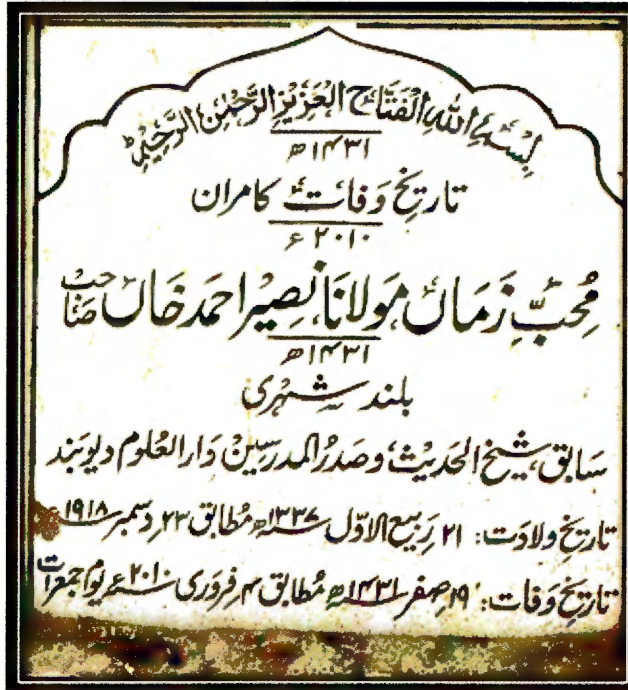 بِسْمِ اللّٰهِ الْفَتَّاحِ الْعَزِیْزِ الرَّحْمٰنِ الرَّحِیْمِ
۱۴۳۱ھ
تاریخ وفات کامران
۲۰۱۰ء
مُحِبِّ زَمَاں مَولَانا نصِیر احمد خَاں صَاحب
۱۴۳۱ھ
بلند شہری
سَابق شیخ الحدیث وصَدرُ المدرسین دَار العُلوم دیوبند
تاریخ ولادت: ۲۱ رَبیع الاوّل ۱۳۳۷ھ مُطابق ۲۳ دِسمبر ۱۹۱۸
تاریخ وَفات: ۱۹ صفر ۱۴۳۱ھ مُطابق ۴ فروری ۲۰۱۰ء یوم جمعرات